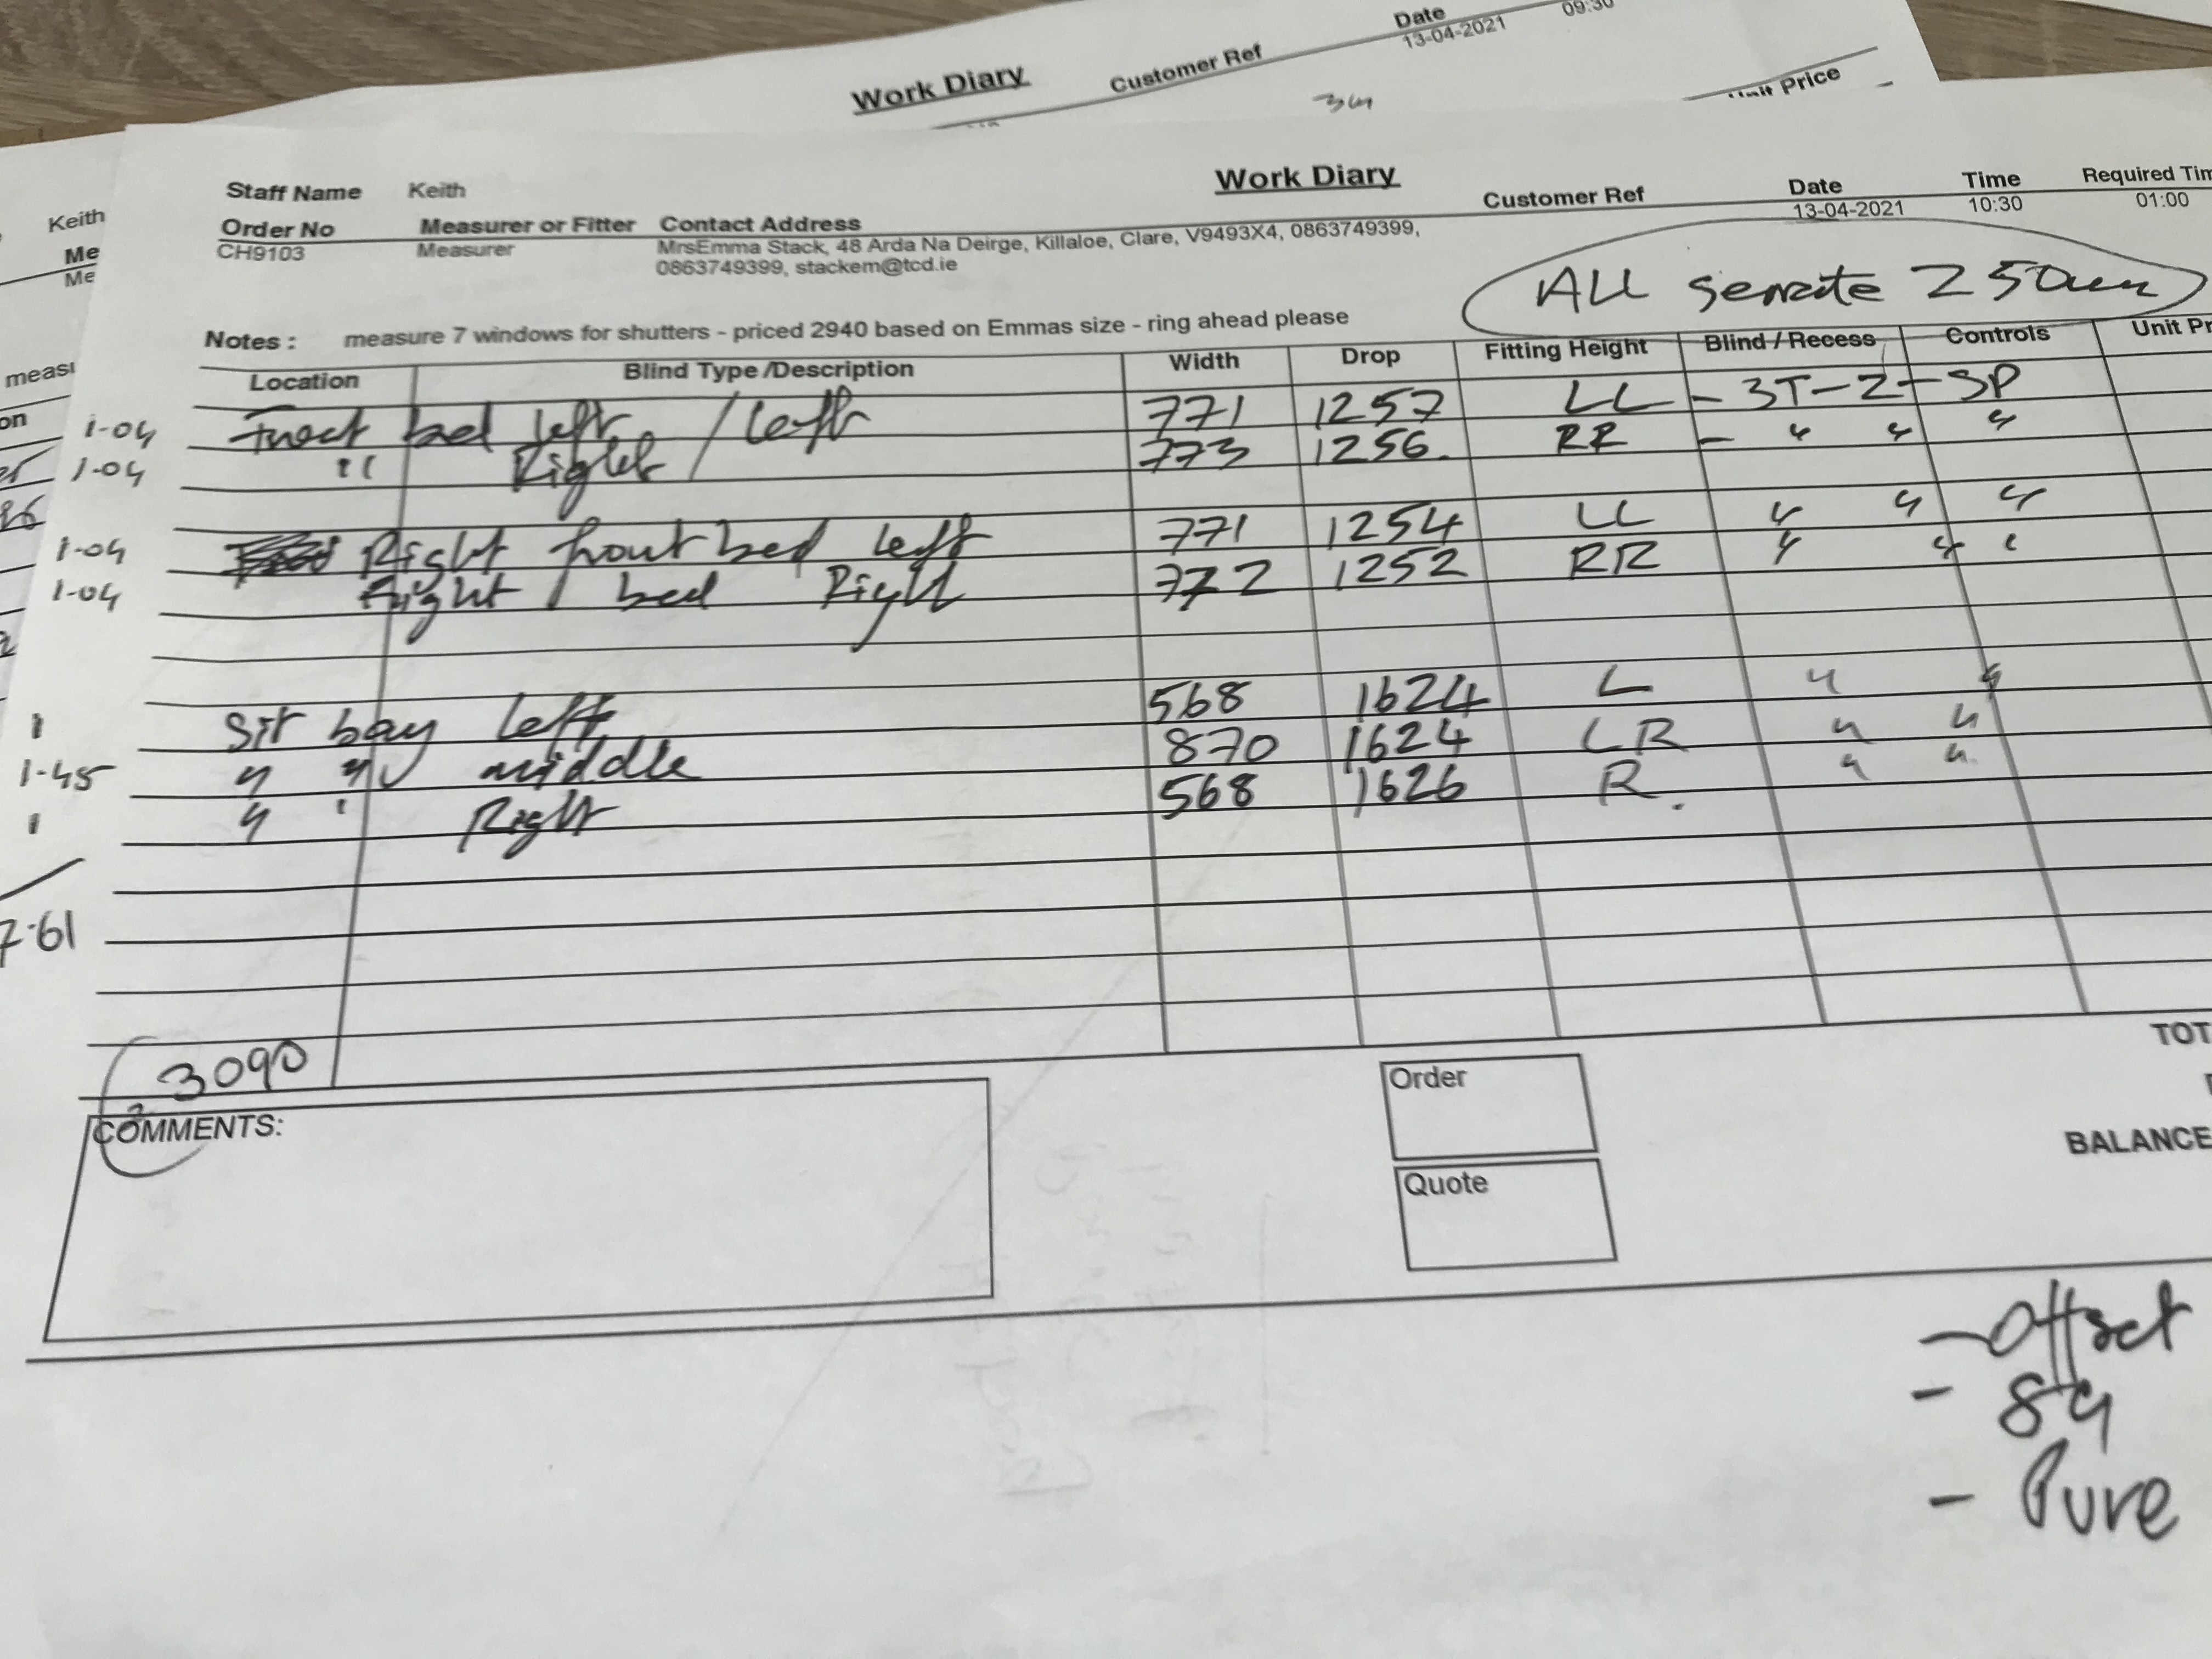 Date
13-04-2021
09:30
Work Diary
Customer Ref
Unit Price
Keith
Me
Me
meas
on
Work Diary
Staff Name Keith
Customer Ref Date Time Required Tim
13-04-2021 10:30 01:00
Order No Measurer or Fitter Contact Address
CH9103 Measurer MrsEmma Stack, 48 Arda Na Deirge, Killaloe, Clare, V9493X4, 0863749399,
0863749399, stackem@tcd.ie
ALL 250mm
Notes : measure 7 windows for shutters - priced 2940 based on Emmas size - ring ahead please
Location Blind Type /Description Width Drop Fitting Height Blind / Recess Controls Unit Pr
1-04 Front bed left / left 771 1257 LL - 3T-Z-SP
1-04 " Right 773 1256. RR - " " "
1-04 Right front bed left 771 1254 LL " " "
1-04 Right bed Right 772 1252 RR " " "
1 Sit bay left 568 1624 L " "
1-45 " " middle 870 1624 LR " "
1 " " Right 568 1626 R. " "
7-61
3090
COMMENTS:
Order
Quote
TOT
BALANCE
- Offset
- 89
- Pure